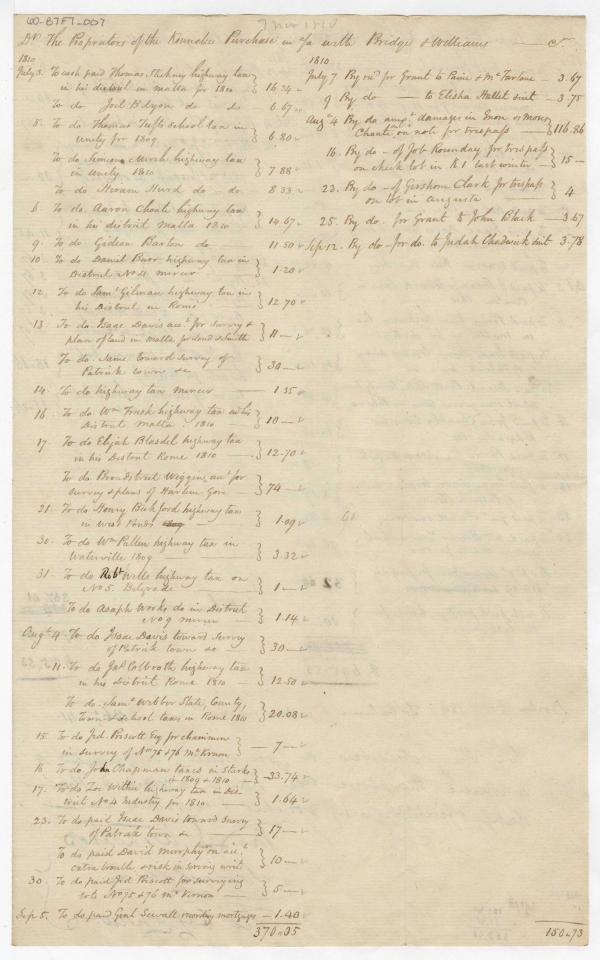 60-B7F7-007
7 Nov 1810
Dr. The Proprietors of the Kennebec Purchase in a/c with Bridge & Williams — Cr.
1810
July 3. To cash paid Thomas Stickney highway tax
in his district in Malta for 1810 } 16.24
To do Joel Bdyon do do 6.67
5. To do Thomas Tufts school tax in
unity for 1809 } 6.80
To do Simeon Marsh highway tax
in Unity 1810 } 7.88
To do Hiram Hurd do do 8.33
6. To do. Aaron Choate highway tax
in his district Malta 1810 } 14.67
9. To do Gideon Barton do — 11.50
10. To do Daniel Burr highway tax in
District No 4 mercer } 1.20
12. To do Saml. Gilman highway tax in
his District in Rome } 12.70
13 To do. Isaac Davis acct. for survey &
plan of land in malta } 11 —
To do. Same toward survey of
Patrick town &c } 30 —
14. To do highway tax mercer — 1.35
16. To do. Wm Trask highway tax in his
District Malta 1810 — } 10 —
17. To do Elijah Blasdel highway tax
in his District Rome 1810 — } 12.70
To do Broadstreet Wiggins acct for
survey & plans of Harlem Gore — } 74 —
21. To do Henry Bickford highway tax
in West Ponds } 1.09
30. To do Wm Pullen highway tax in
Waterville 1809 — } 3.32
31. To do Robt Wells highway tax on
No 5. Belgrade } 1 —
To do Asaph Works do in District
No 9 mercer } 1.14
Augt. 4. To do. Isaac Davis toward survey
of Patrick town &c — } 30 —
11. To do Jas Colbroth highway tax
in his District Rome 1810 — } 12.50
To do. Saml Webber State, County,
Town & school taxes in Rome 1810 } 20.08
15. To do Jed. Prescott Esq for chainmen
in survey of Nos 75 & 76 Mt Vernon } — 7 —
16 To do. John Chapman taxes in Starks
1809 & 1810 — } 33.74
17. To do Zoe Within highway tax in Dis-
trict No 4 Industry for 1810. } 1.64
23. To do paid Isaac Davis toward survey
of Patrick town &c — } 17 —
To do paid David Murphy on acct
extra trouble & risk in serving writs } 10 —
30. To do paid Jed Prescott for surveying
lots Nos 75 & 76 Mt Vernon — } 5 —
Sep 5. To do paid Genl Sewall recording mortgages — 1.40
370.05
1810.
July 7 By recd for Grant to Paine & McFarlane — 3.67
9 By do — to Elisha Hallet — 3.75
Augt 4 By do amot. damages in Exon vs Moses
Choate on note for trespass } 116.86
16. By do — of Job Rounday for trespass
on check lot in K 1 last winter — } 15 —
23. By do — of Gershom Clark for trespass
on lot in Augusta } 4
25. By do. for Grant to John Black — 3.67
Sep. 12. By do — for do. to Judah Chadwick — 3.78
150.73